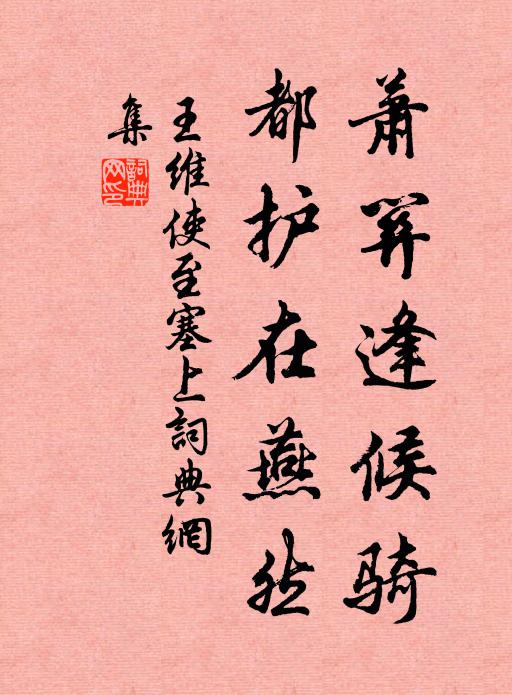 萧关逢候骑
都护在燕然
王维使至塞上詞典網
集
詞典
网印